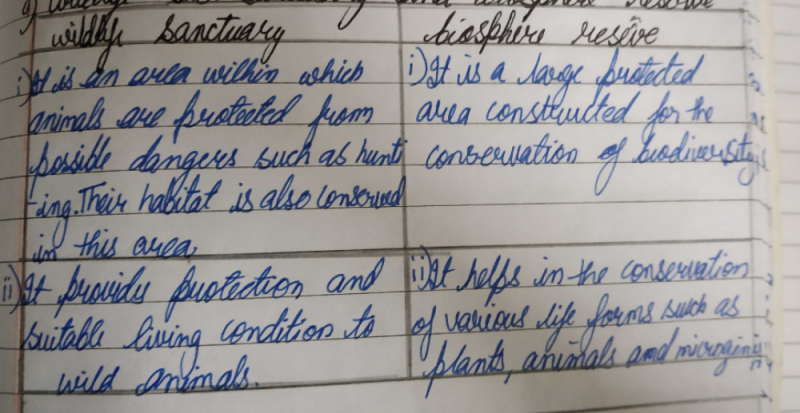 g) wildlife sanctuary and biosphere reserve
wildlife sanctuary
i) It is an area within which
animals are protected from
possible dangers such as hunti
-ing. Their habitat is also conserved
in this area.
ii) It provides protection and
suitable living condition to
wild animals.
biosphere reseve
i) It is a large protected
area constructed for the
conservation of biodiversity
ii) It helps in the conservation
of various life forms such as
plants, animals and